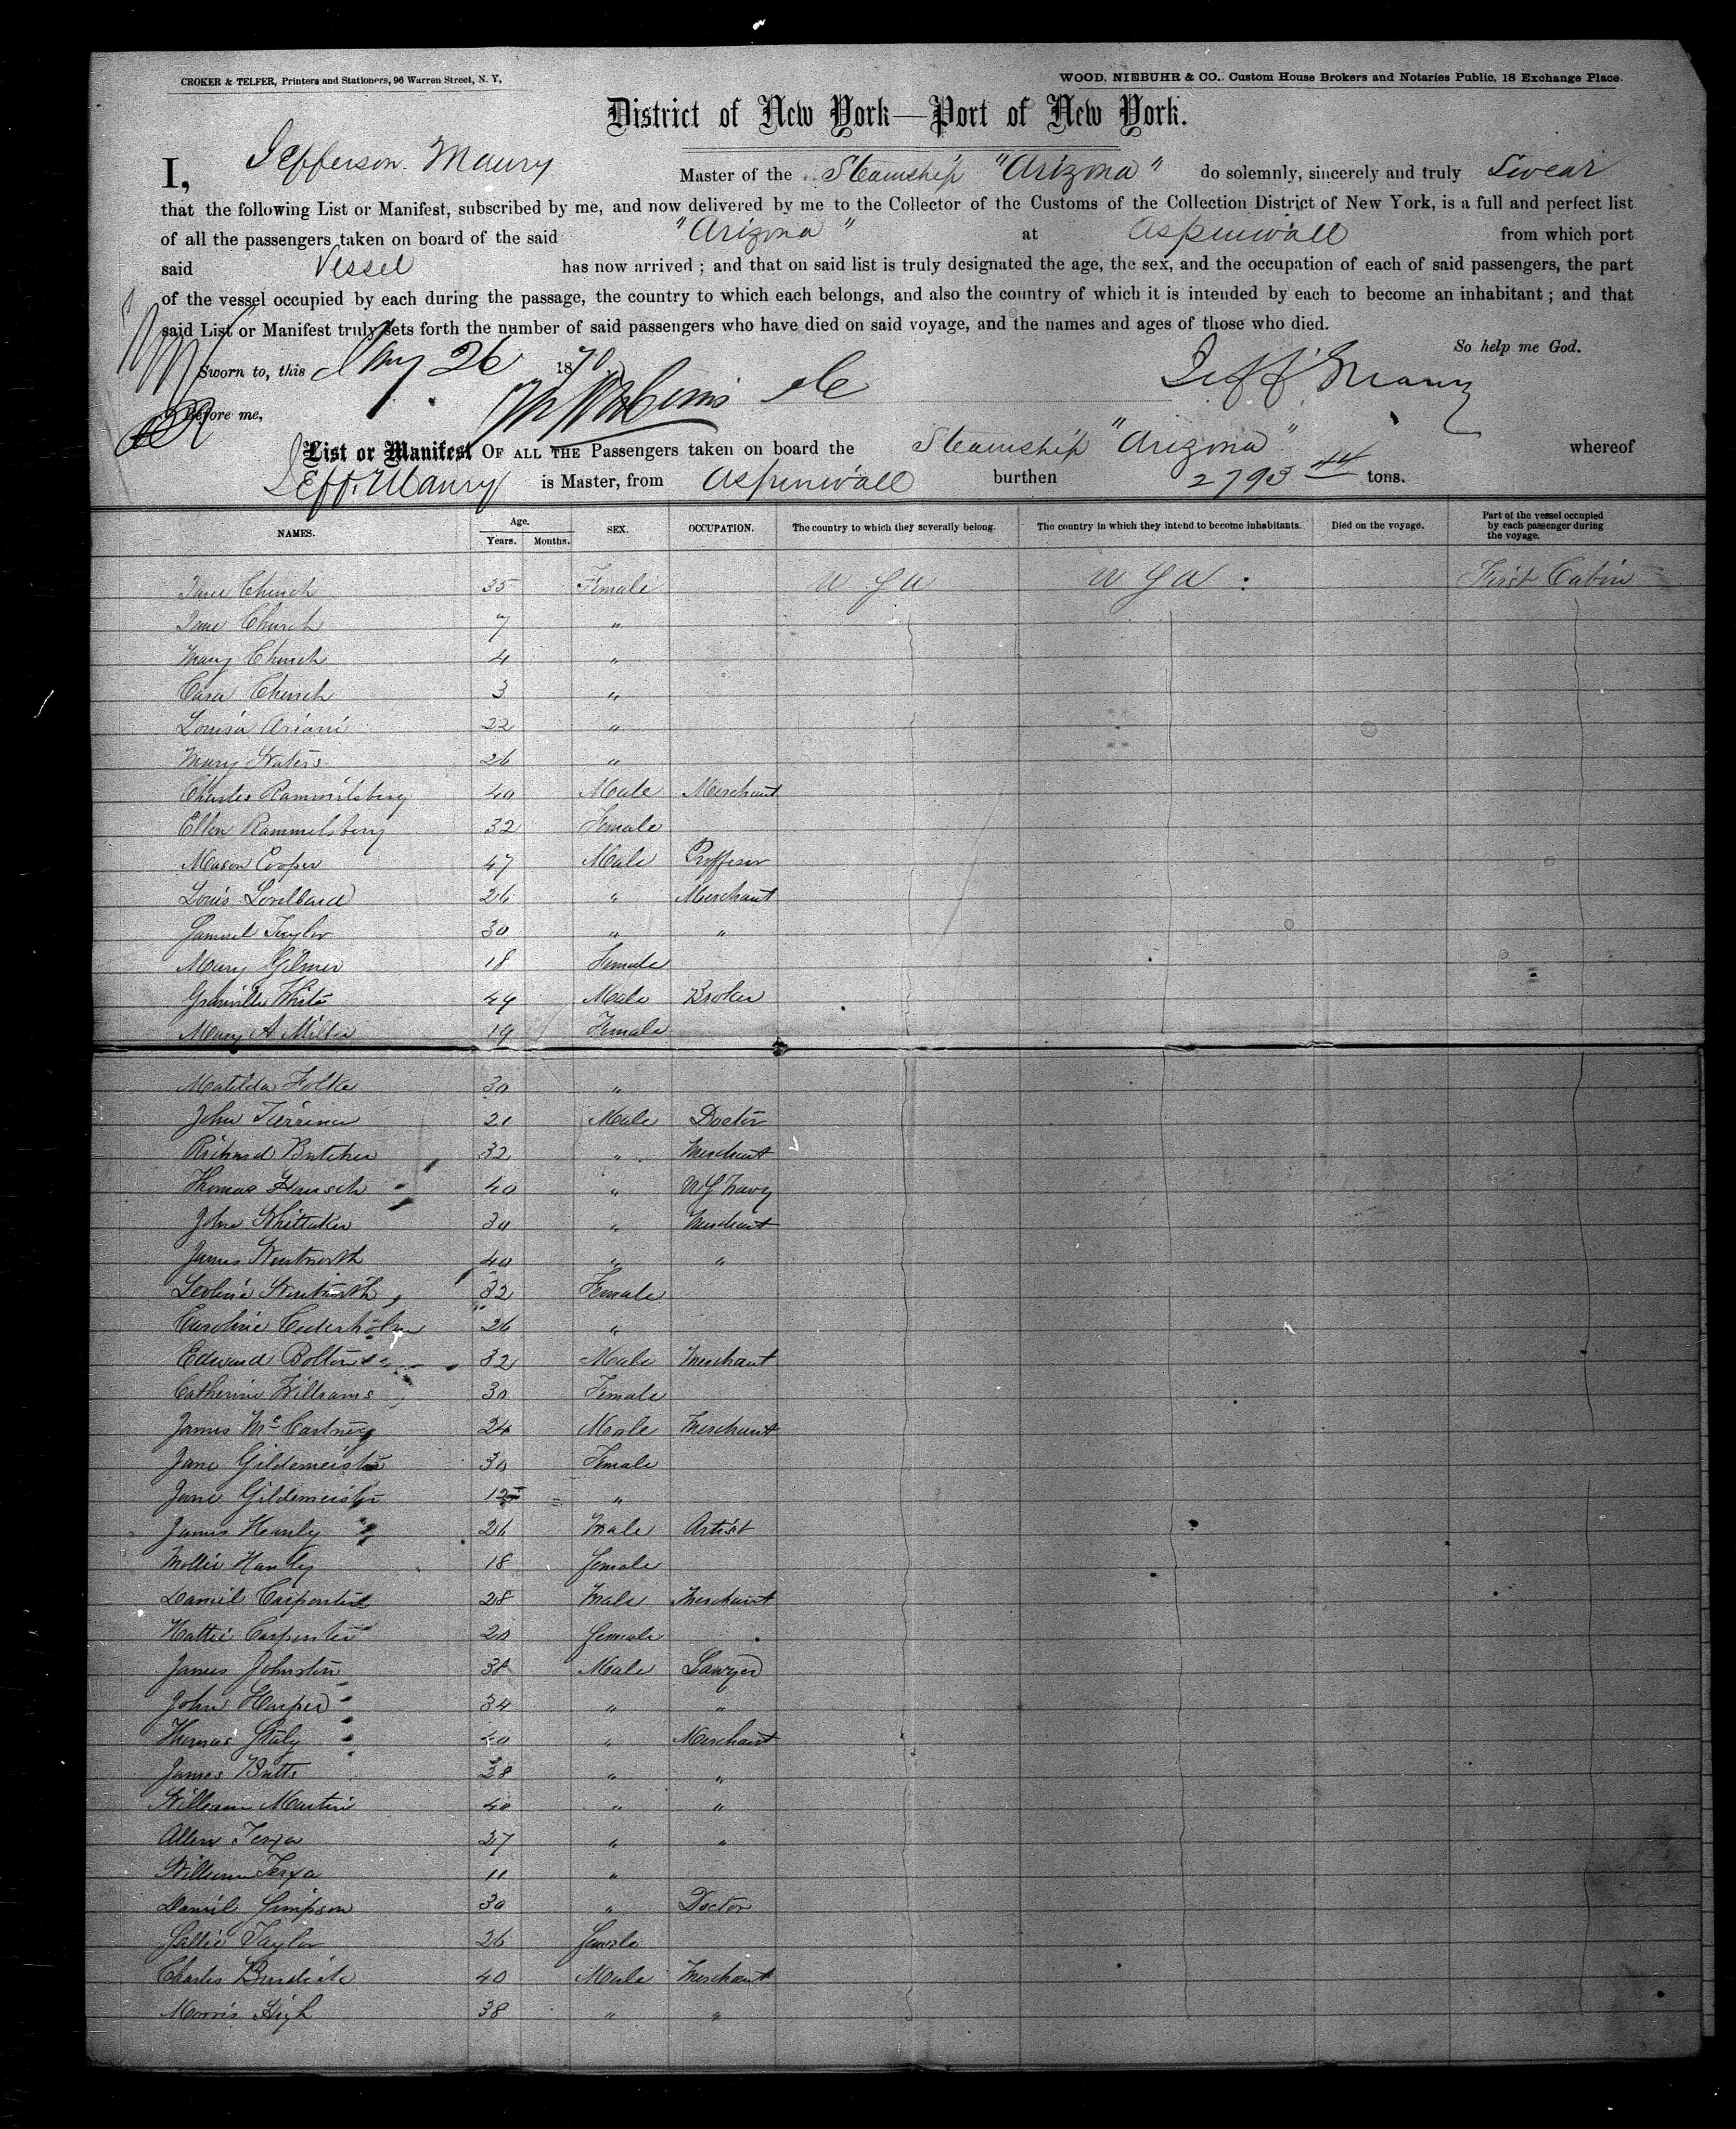 CROKER & TELFER, Printers and Stationers, 96 Warren Street, N. Y,
WOOD, NIEBUHR & CO., Custom House Brokers and Notaries Public, 18 Exchange Place.
District of New York—Port of New York.
I, Jefferson Maury Master of the Steamship "Arizona" do solemnly, sincerely and truly Swear
that the following List or Manifest, subscribed by me, and now delivered by me to the Collector of the Customs of the Collection District of New York, is a full and perfect list
of all the passengers taken on board of the said "Arizona" at Aspinwall from which port
said Vessel has now arrived ; and that on said list is truly designated the age, the sex, and the occupation of each of said passengers, the part
of the vessel occupied by each during the passage, the country to which each belongs, and also the country of which it is intended by each to become an inhabitant ; and that
said List or Manifest truly sets forth the number of said passengers who have died on said voyage, and the names and ages of those who died.
So help me God.
Sworn to, this May 26 1870 Jeff Maury
Before me,
List or Manifest OF ALL THE Passengers taken on board the Steamship "Arizona" whereof
Jeff. Maury is Master, from Aspinwall burthen 2793 44 tons.
NAMES. Age. Years. Months. SEX. OCCUPATION. The country to which they severally belong. The country in which they intend to become inhabitants. Died on the voyage. Part of the vessel occupied by each passenger during the voyage.
Jane Church 35 Female U S A U S A First Cabin
Jane Church 7 "
Mary Church 4 "
Cara Church 3 "
Louisa Ariani 22 "
Mary Waters 26 "
Charles Rammilsberg 40 Male Merchant
Ellen Rammelsberg 32 Female
Mason Cooper 47 Male Proffesor
Louis Lorillard 26 " Merchant
Samuel Taylor 30 " "
Mary Gilmer 18 Female
Granville White 44 Male Broker
Mary A Miller 19 Female
Matilda Folke 30 "
John 21 Male Doctor
Richard Butcher 32 " Merchant
Thomas 40 " U S Navy
John Whittaker 30 " Merchant
James Wentworth 40 " "
Wentworth 32 Female
Caroline Cederholm 26 "
Edward Bolton 32 Male Merchant
Catherine Williams 30 Female
James McCartney 24 Male Merchant
Jane Gildemeister 30 Female
Jane Gildemeister 12 "
James Hanly 26 Male Artist
Mollie Hanly 18 female
Daniel Carpenter 28 Male Merchant
Hattie Carpenter 20 female
James Johnston 38 Male Lawyer
John Harper 34 " "
Thomas Staly 40 " Merchant
James Butts 38 " "
William Martin 40 " "
Allen Terxa 27 " "
William Terxa 11 "
Daniel Simpson 30 " Doctor
Sallie Taylor 26 female
Charles Burdick 40 Male Merchant
Morris High 38 " "